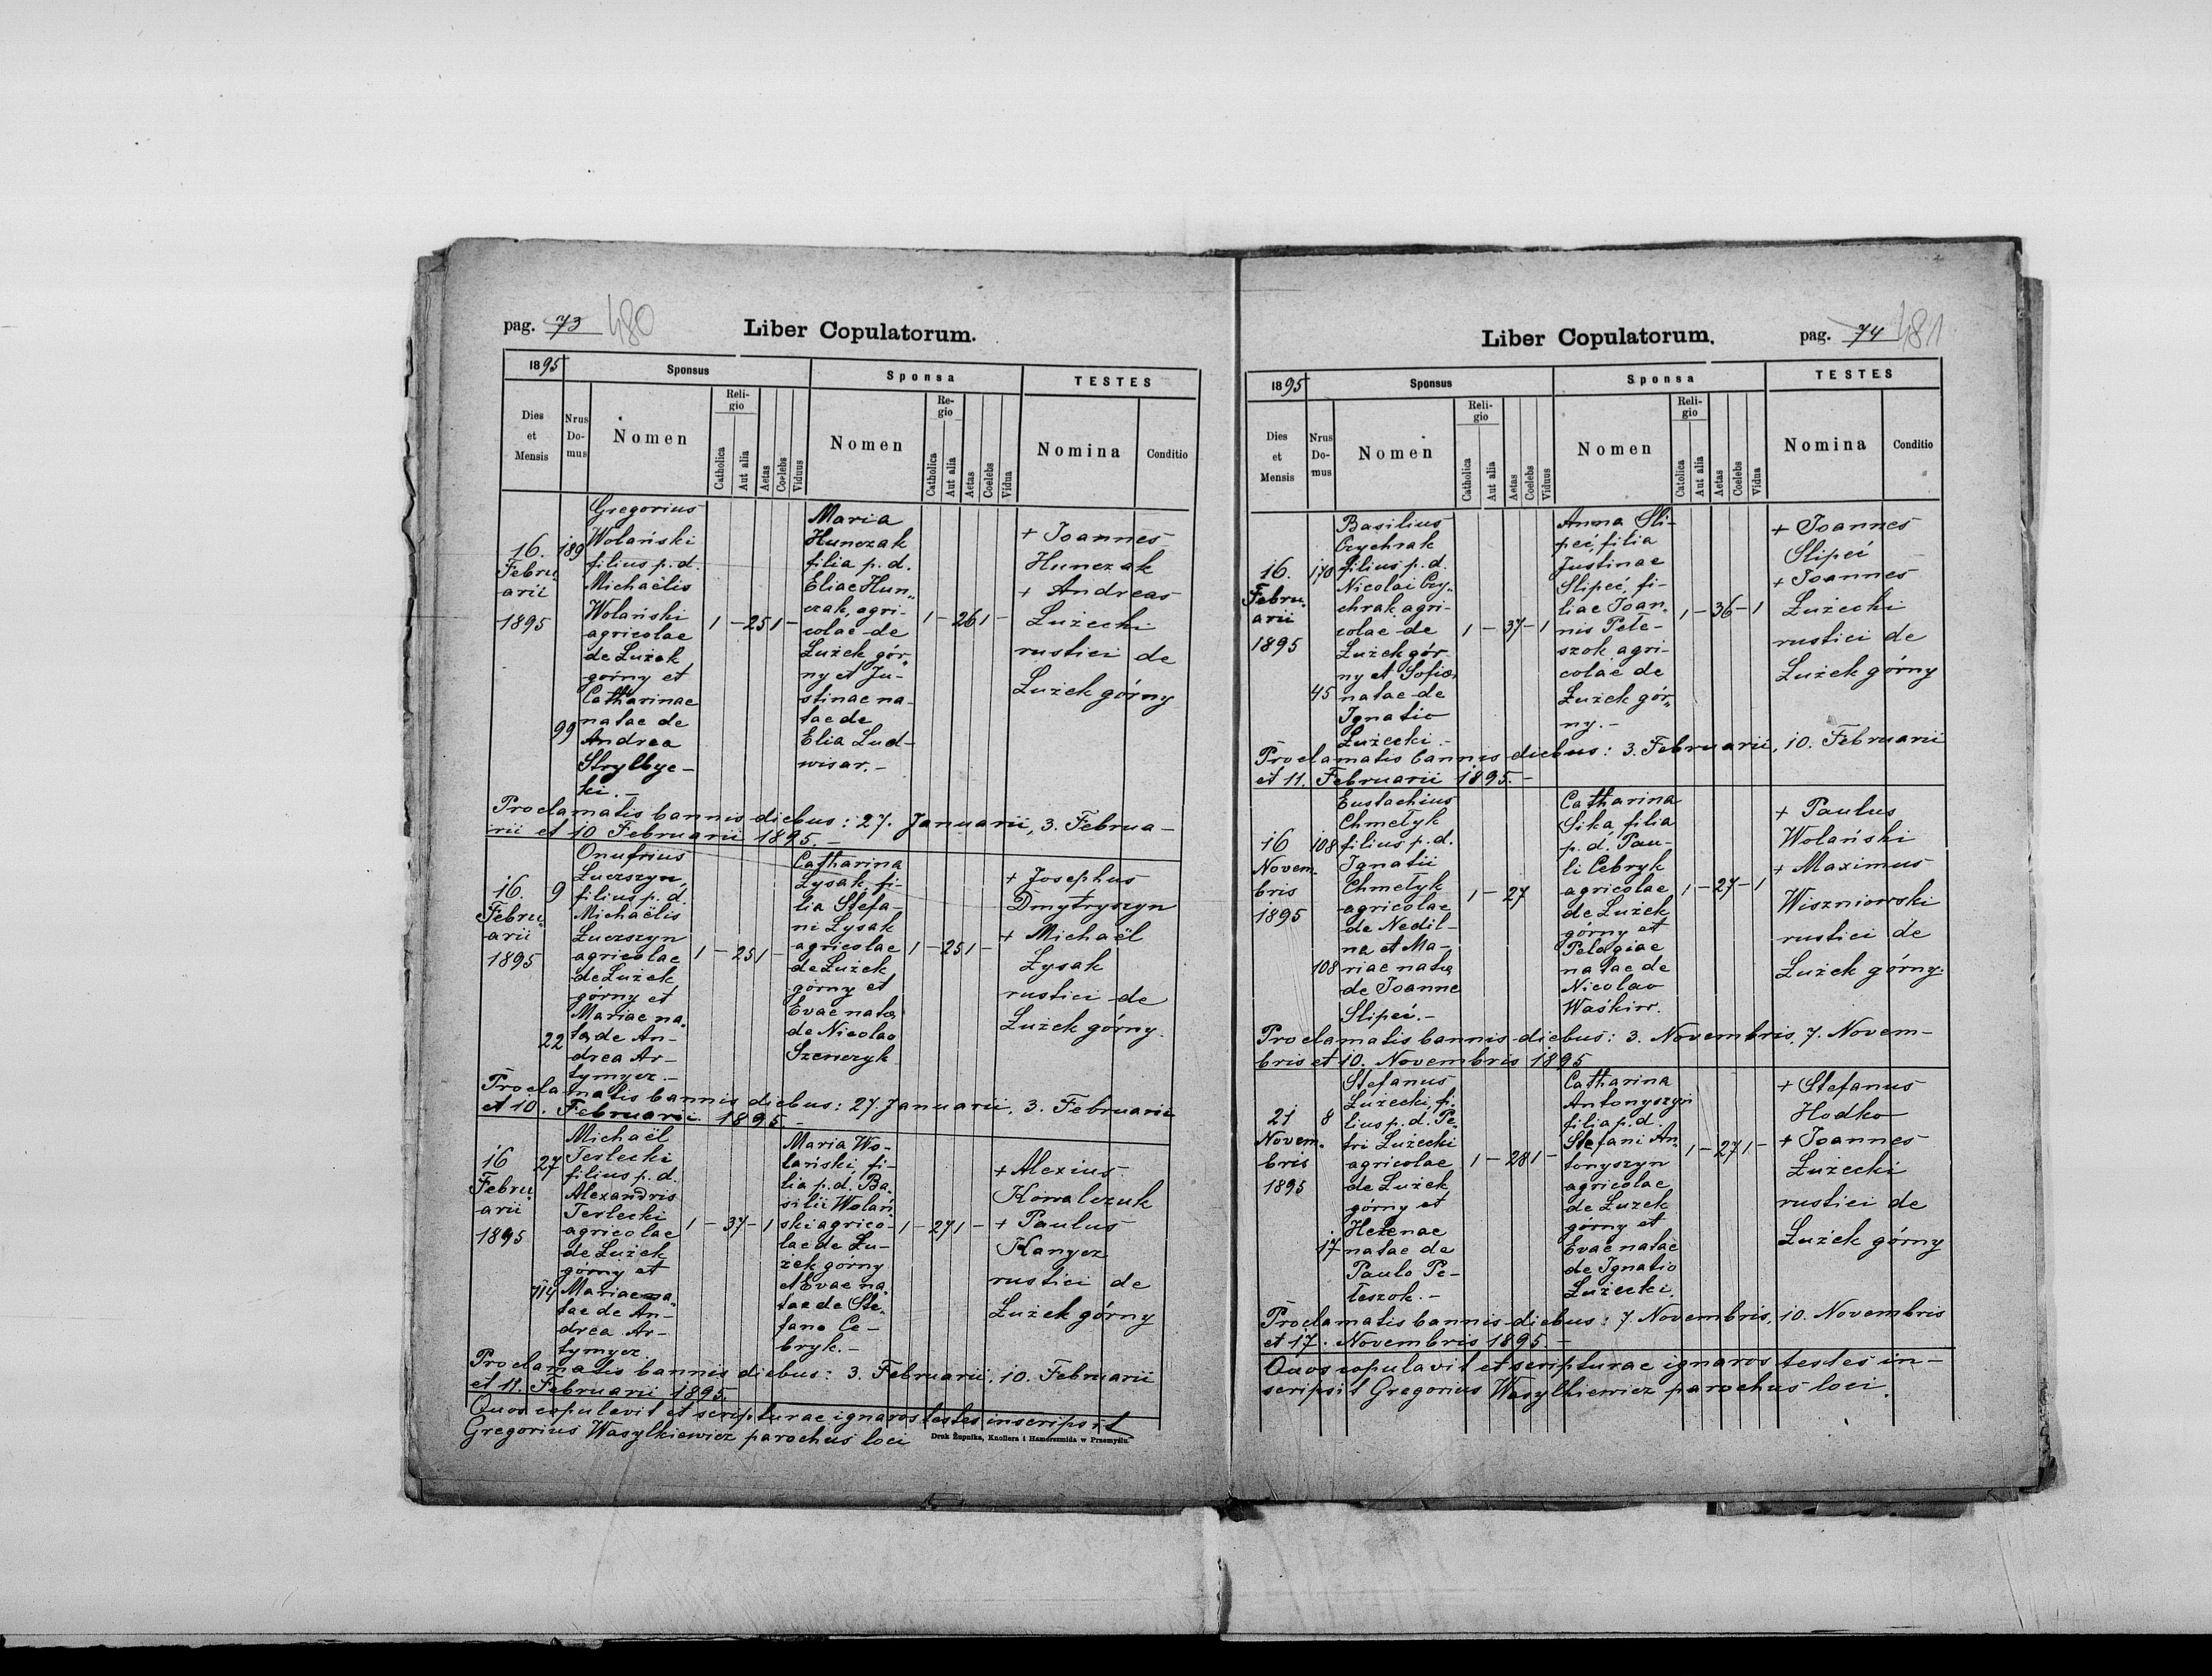 pag. 73 480
Liber Copulatorum.
1895
Sponsus
Sponsa
TESTES
Dies et Mensis
Nrus Do- mus
Nomen
Reli- gio
Catholica
Aut alia
Aetas
Coelebs
Viduus
Nomen
Re- gio
Catholica
Aut alia
Aetas
Coelebs
Vidua
Nomina
Conditio
16.
Febru„
arii
1895
189
99
Gregorius
Wolański
filius p. d.
Michaëlis
Wolański
agricolae
de Łużek
górny et
Catharinae
natae de
Andrea
Strylbyc-
ki. –
1 – 25 1 –
Maria
Hunczak
filia p. d.
Eliae Hun„
czak, agri-
colae de
Łużek gór„
ny et Ju-
stinae na-
tae de
Elia Lud-
wisar. –
1 – 26 1 –
+ Joannes
Hunczak
+ Andreas
Łużecki
rustici de
Łużek górny
Proclamatis bannis diebus: 27. Januarii, 3. Februa-
rii et 10 Februarii 1895. –
16.
Febru„
arii
1895
9
22
Onufrius
Łuczszyn,
filius p. d.
Michaëlis
Łuczszyn
agricolae
de Łużek
górny et
Mariae na„
tą de An-
drea Ar-
tymycz. –
1 – 25 1 –
Catharina
Łysak, fi-
lia Stefa-
ni Łysak
agricolae
de Łużek
górny et
Evae natą
de Nicolao
Szenczyk
1 – 25 1 –
+ Josephus
Dmytryszyn
+ Michaël
Łysak
rustici de
Łużek górny.
Proclamatis bannis diebus: 27. Januarii, 3. Februarii
et 10. Februarii 1895. –
16
Febru„
arii
1895
27
114
Michaël
Terlecki
filius p. d.
Alexandris
Terlecki
agricolae
de Łużek
górny et
Mariae na„
tae de An-
drea Ar-
tymycz.
1 – 37 – 1
Maria Wo-
lański, fi-
lia p. d. Ba„
silii Wolań„
ski agrico-
lae de Łu-
żek górny
et Evae na„
tae de Ste„
fano Ce-
bryk. –
1 – 27 1 –
+ Alexius
Kowalczuk
+ Paulus
Kanycz
rustici de
Łużek górny
Proclamatis bannis diebus: 3. Februarii, 10. Februarii
et 11. Februarii 1895.
Quos copulavit et scripturae ignaros testes inscripsit
Gregorius Wasylkiewicz parochus loci
Druk Żupnika, Knollera i Hamerszmida w Przemyślu.
Liber Copulatorum.
pag. 74 481
1895
Sponsus
Sponsa
TESTES
Dies et Mensis
Nrus Do- mus
Nomen
Reli- gio
Catholica
Aut alia
Aetas
Coelebs
Viduus
Nomen
Reli- gio
Catolica
Aut alia
Aetas
Coelebs
Vidua
Nomina
Conditio
16.
Febru„
arii
1895
170
45
Basilius
Czychrak
filius p. d.
Nicolai Czy„
chrak agri-
colae de
Łużek gór„
ny et Sofią
natae de
Ignatio
Łużecki. –
1 – 37 – 1
Anna Sli-
peć, filia
Justinae
Slipeć, fi-
liae Joan„
nis Pete-
szok agri-
colae de
Łużek gór„
ny. –
1 – 36 – 1
+ Joannes
Slipeć
+ Joannes
Łużecki
rustici de
Łużek górny
Proclamatis bannis diebus: 3. Februarii, 10. Februarii
et 11. Februarii 1895. –
16
Novem„
bris
1895
108
108
Eustachius
Chmełyk
filius p. d.
Ignatii
Chmełyk
agricolae
de Nedil-
na et Ma-
riae natą
de Joanne
Slipeć. –
1 – 27
Catharina
Sika, filia
p. d. Pau-
li Cebryk
agricolae
de Łużek
górny et
Pelagiae
natae de
Nicolao
Waśkiw.
1 – 27 – 1
+ Paulus
Wolański
+ Maximus
Wiszniowski
rustici de
Łużek górny.
Proclamatis bannis diebus: 3. Novembris, 7. Novem-
bris et 10. Novembris 1895
21
Novem„
bris
1895
8
17
Stefanus
Łużecki, fi„
lius p. d. Pe„
tri Łużecki
agricolae
de Łużek
górny et
Helenae
natae de
Paulo Pe-
teszok. –
1 – 28 1 –
Catharina
Antonyszyn
filia p. d.
Stefani An„
tonyszyn
agricolae
de Łużek
górny et
Evae natae
de Ignatio
Łużecki.
1 – 27 1 –
+ Stefanus
Hodko
+ Joannes
Łużecki
rustici de
Łużek górny
Proclamatis bannis diebus: 7 Novembris, 10. Novembris
et 17. Novembris 1895. –
Quos copulavit et scripturae ignaros testes in-
scripsit Gregorius Wasylkiewicz parochus loci.